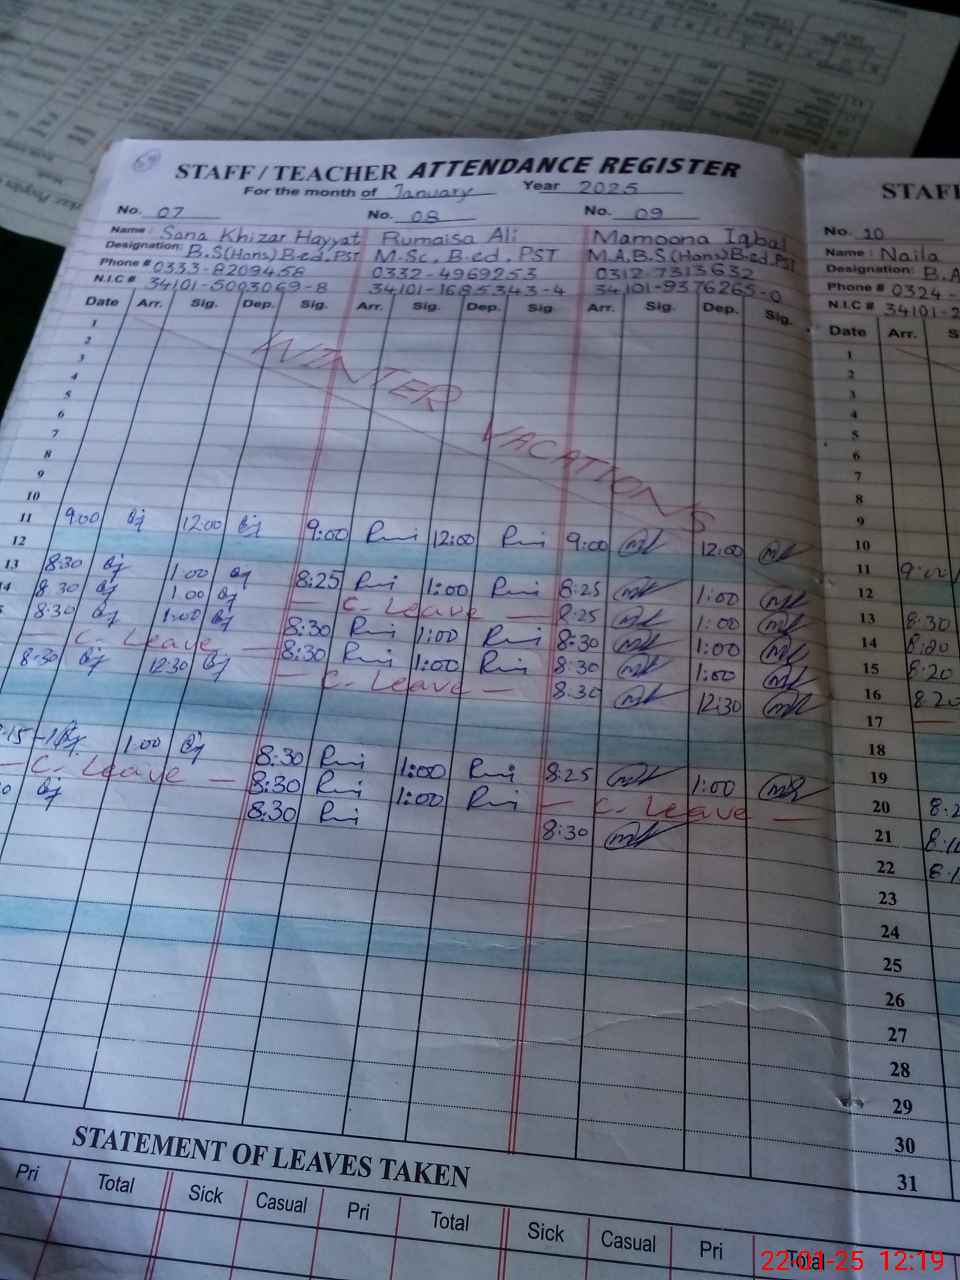 59
STAFF/TEACHER ATTENDANCE REGISTER
For the month of January Year 2025
No. 07 No. 08 No. 09
Name: Sana Khizar Hayyat Rumaisa Ali Mamoona Iqbal
Designation: B.S(Hons) B.ed, PST M.Sc. B.ed. PST M.A, B.S(Hons) B.ed, PST
Phone # 0333-8209458 0332-4969253 0312-7313632
N.I.C # 34101-5093069-8 34101-1685343-4 34101-9376265-0
Date Arr. Sig. Dep. Sig. Arr. Sig. Dep. Sig. Arr. Sig. Dep. Sig.
1
2
3
4
5
6
7
8
9
10
WINTER VACATIONS
11 9:00 12:00 9:00 Rmi 12:00 Rmi 9:00 12:00
12
13 8:30 1:00 8:25 Rmi 1:00 Rmi 8:25 1:00
14 8:30 1:00 - C. Leave - 8:25 1:00
8:30 1:00 8:30 Rmi 1:00 Rmi 8:30 1:00
- C. Leave - 8:30 Rmi 1:00 Rmi 8:30 1:00
8:30 12:30 - C. Leave - 8:30 12:30
1:00 8:30 Rmi 1:00 Rmi 8:25 1:00
- C. Leave - 8:30 Rmi 1:00 Rmi - C. Leave -
8:30 Rmi 8:30
STATEMENT OF LEAVES TAKEN
Pri Total Sick Casual Pri Total Sick Casual Pri Total
STAFF
No. 10
Name: Naila
Designation: B.A
Phone # 0324-
N.I.C # 34101-2
Date Arr. S
1
2
3
4
5
6
7
8
9
10
11 9:00
12
13 8:30
14 8:20
15 8:20
16 8:20
17 -
18
19
20
21
22
23
24
25
26
27
28
29
30
31
22-01-25 12:19